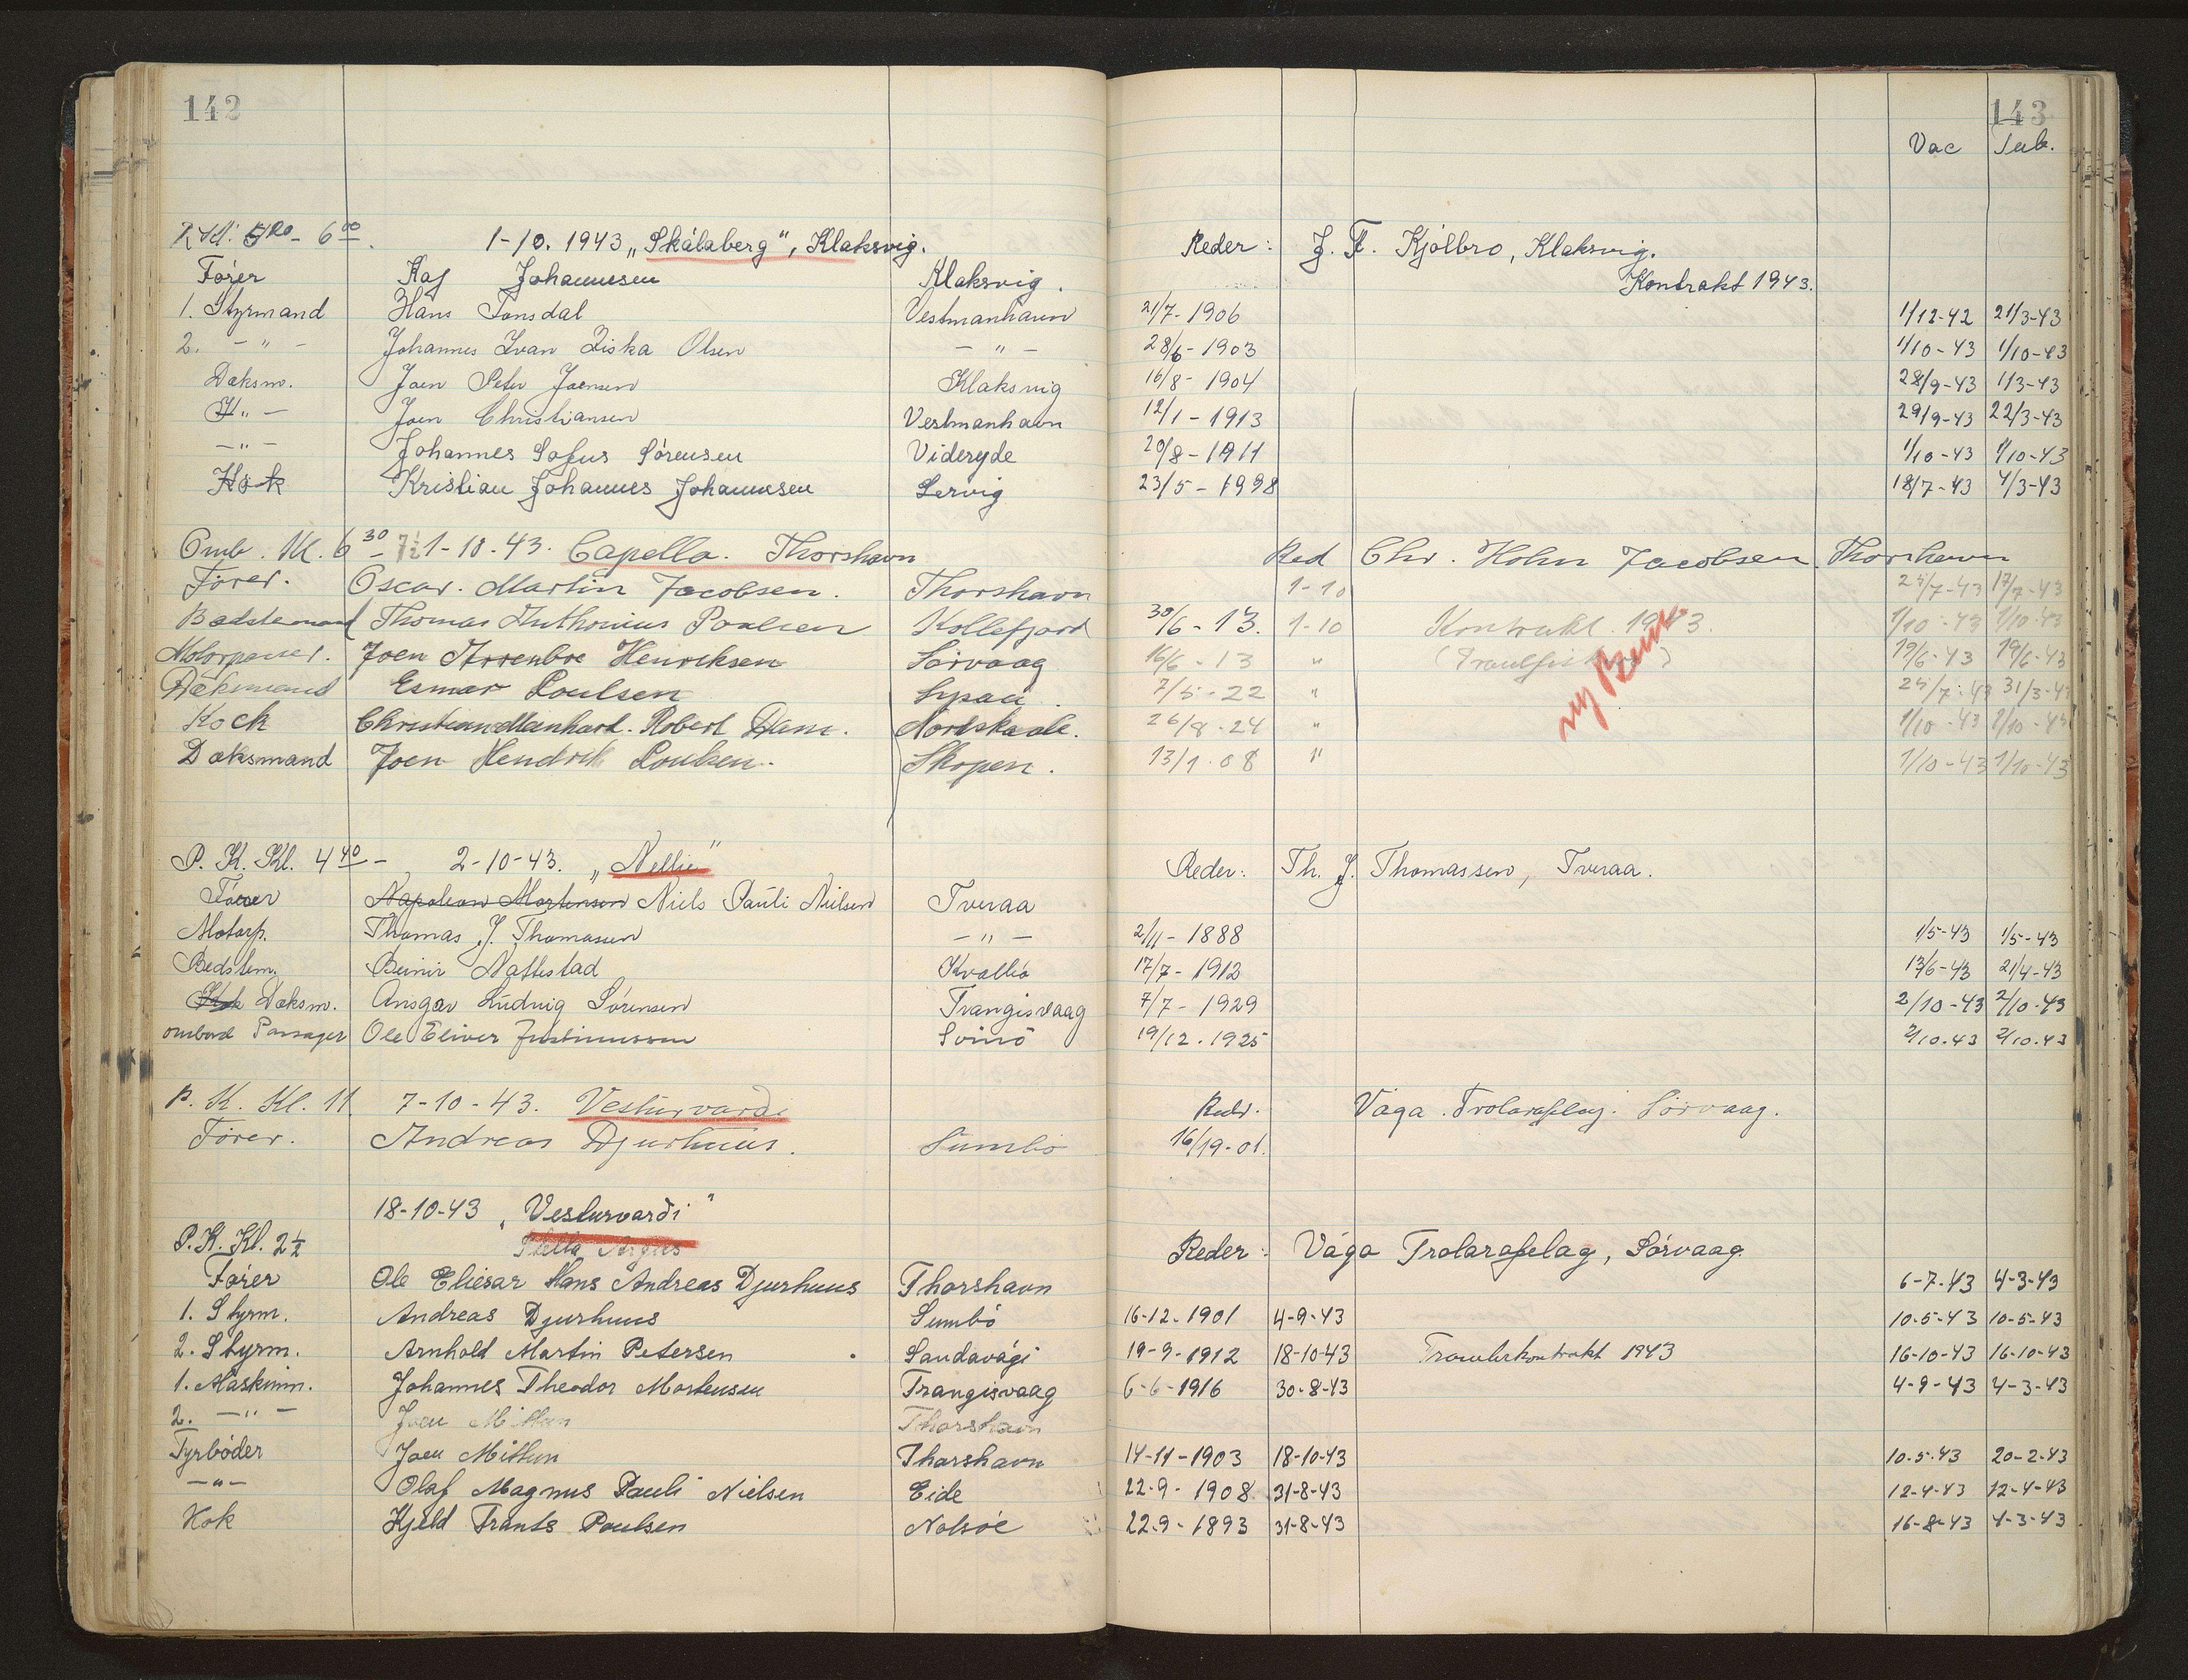 142
143
Vac Tub.
1-10. 1943 „Skálaberg“, Klaksvig. Reder: J. F. Kjölbro, Klaksvig.
Förer Kaj Johannesen Klaksvig. Kontrakt 1943.
1. Styrmand Hans Jonsdal Vestmanhavn 21/7-1906 1/12-42 21/3-43
2. -"- Johannes Ivan Ziska Olsen -"- 28/6-1903 1/10-43 1/10-43
Dæksm. Joen Peter Joensen Klaksvig 16/8-1904 28/9-43 1/3-43
-"- Joen Christiansen Vestmanhavn 12/1-1913 29/9-43 22/3-43
-"- Johannes Sofus Sörensen Videryde 20/8-1911 1/10-43 1/10-43
Kok Kristian Johannes Johannesen Lervig 23/5-1998 18/7-43 4/3-43
Omb. Kl. 6 30 - 7½ 1-10-43. Capella. Thorshavn Red Chr. Holm Jacobsen Thorshavn
Förer. Oscar. Martin Jacobsen. Thorshavn 1-10 25/7-43 17/7-43
Bedstemand Thomas Anthonius Poulsen Kollefjord 30/6-13. 1-10 Kontrakt. 1943. 1/10-43 1/10-43
Motorpasser. Joen Arrenbre Henriksen Sörvaag 16/6-13 " 19/6-43 19/6-43
Dæksmand Esmar Poulsen 7/5-22 " 25/7-43 31/3-43
Kock Christian Meinhard. Robert Dam. Nordskaale. 26/8-24 " 1/10-43 1/10-43
Dæksmand Joen Hendrik Poulsen. Skopen. 13/1-08 " 1/10-43 1/10-43
P. K. Kl. 4 40 - 2-10-43. „Nellie“ Reder: Th. J. Thomassen, Tveraa.
Förer Napoleon Mortensen Niels Pauli Nielsen Tveraa
Motorp. Thomas J. Thomasen -"- 2/11-1888 1/5-43 1/5-43
Bedstem. Beinir Nattestad Kvalbö 17/7-1912 13/6-43 21/4-43
Kok Dæksm. Ansgar Ludvig Sörensen Trangisvaag 7/7-1929 2/10-43 2/10-43
ombord Passager Ole Eliver Justinussen Svinö 19/12.1925 2/10.43 2/10.43
P. K. Kl. 11 7-10-43. Vesturvardi Reder. Vága Trolarafelag. Sörvaag.
Förer. Andreas Djurhuus. Sumbö 16/19-01.
18-10-43 „Vesturvarði“
P. K. Kl. 2½ Stella Argus Reder: Vága Trolarafelag, Sörvaag.
Förer Ole Eliesar Hans Andreas Djurhuus Thorshavn 6-7-43 4-3-43
1. Styrm. Andreas Djurhuus Sumbö 16-12-1901 4-9-43 10-5-43 10-5-43
2. Styrm. Arnhold Martin Petersen Sandavági 19-9-1912 18-10-43 Trawlerkontrakt 1943 16-10-43 16-10-43
1. Maskinm. Johannes Theodor Mortensen Trangisvaag 6-6-1916 30-8-43 4-9-43 4-3-43
2. -"- Joen Mittun Thorshavn
Fyrböder Joen Mittun Thorshavn 14-11-1903 18-10-43 10-5-43 20-2-43
-"- Olaf Magnus Pauli Nielsen Eide 22-9-1908 31-8-43 12-4-43 12-4-43
Kok Kjeld Frants Poulsen Nolsöe 22-9-1893 31-8-43 16-8-43 4-3-43